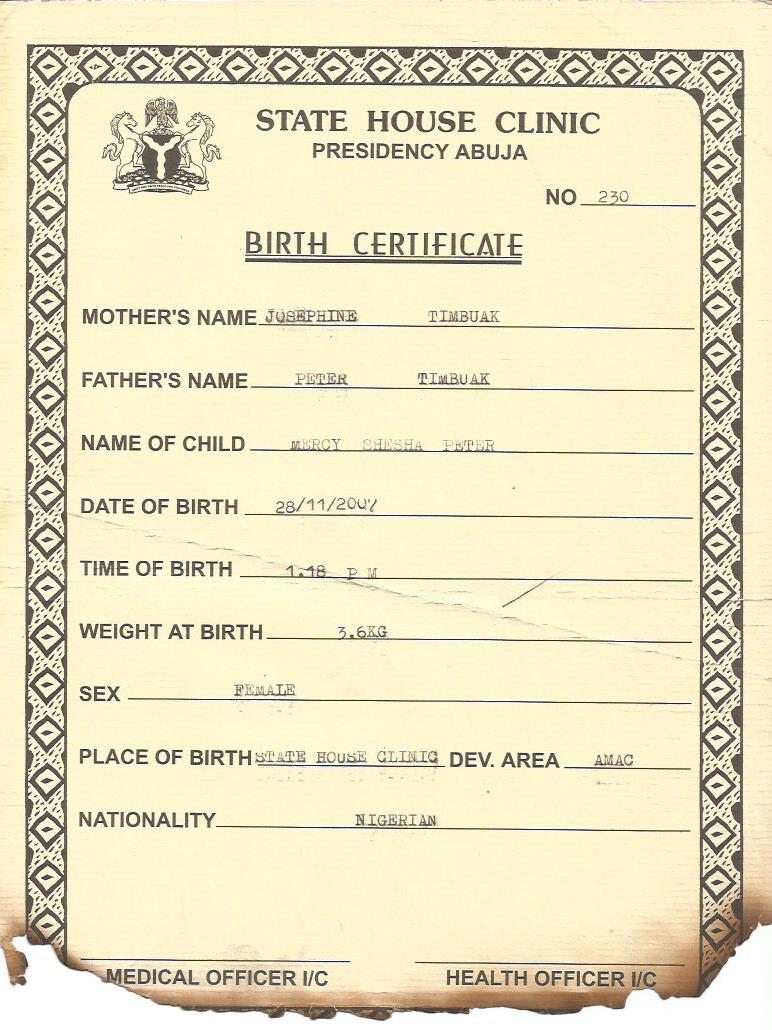 STATE HOUSE CLINIC
PRESIDENCY ABUJA
NO 230
BIRTH CERTIFICATE
MOTHER'S NAME JOSEPHINE TIMBUAK
FATHER'S NAME PETER TIMBUAK
NAME OF CHILD MERCY SHESHA PETER
DATE OF BIRTH 28/11/2007
TIME OF BIRTH 1.18 P M
WEIGHT AT BIRTH 3.6KG
SEX FEMALE
PLACE OF BIRTH STATE HOUSE CLINIC DEV. AREA AMAC
NATIONALITY NIGERIAN
MEDICAL OFFICER I/C HEALTH OFFICER I/C